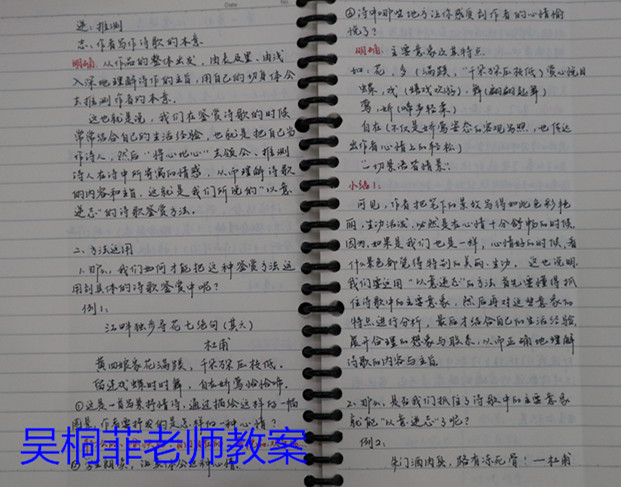 Date
逆:推测
志:作者写作诗歌的本意
明确:从作品的整体出发,由表及里、由浅
入深地理解诗作的主旨,用自己的切身体会
去推测作者的本意。
这也就是说,我们在鉴赏诗歌的时候
常常结合自己的生活经验,也就是把自己当
作诗人,然后"将心比心"去领会、推测
诗人在诗中所寄寓的情感,从而理解诗歌
的内容和主旨。这就是我们所说的"以意
逆志"的诗歌鉴赏方法。
二、方法运用
1.那么,我们如何才能把这种鉴赏方法运
用到具体的诗歌鉴赏中呢?
例1:
江畔独步寻花七绝句(其六)
杜甫
黄四娘家花满蹊,千朵万朵压枝低。
留连戏蝶时时舞,自在娇莺恰恰啼。
①这是一首写景抒情诗,通过描绘这样的一幅
图景,作者要抒发的是怎样的一种心情?
吴桐菲老师教案
②诗中哪些地方让你感受到作者的心情愉
悦了?
明确:主要意象及其特点。
如:花,多(满蹊,"千朵万朵压枝低")赏心悦目
蝶,戏(嬉戏欢游),舞(翩翩起舞)
莺,娇(啼声轻柔)
自在(不仅是娇莺姿态的客观写照,也传达
出作者心情上的轻松)
一切景语皆情语。
小结1:
可见,作者把笔下的景致写得如此色彩艳
丽,生动活泼,必然是在心情十分舒畅的时候。
因为,如果是我们也是一样,心情好的时候,看
什么景色都觉得特别的美丽、生动。这也说明,
我们要运用"以意逆志"的方法首先要懂得抓
住诗歌中的主要意象,然后再对这些意象的
特点进行分析,最后才结合自己的生活经验,
展开合理的想象与联系,从而正确地理解
诗歌的内容与主旨。
2.那么,是否我们抓住了诗歌中的主要意象
就能"以意逆志"了呢?
例2、
朱门酒肉臭,路有冻死骨!—杜甫